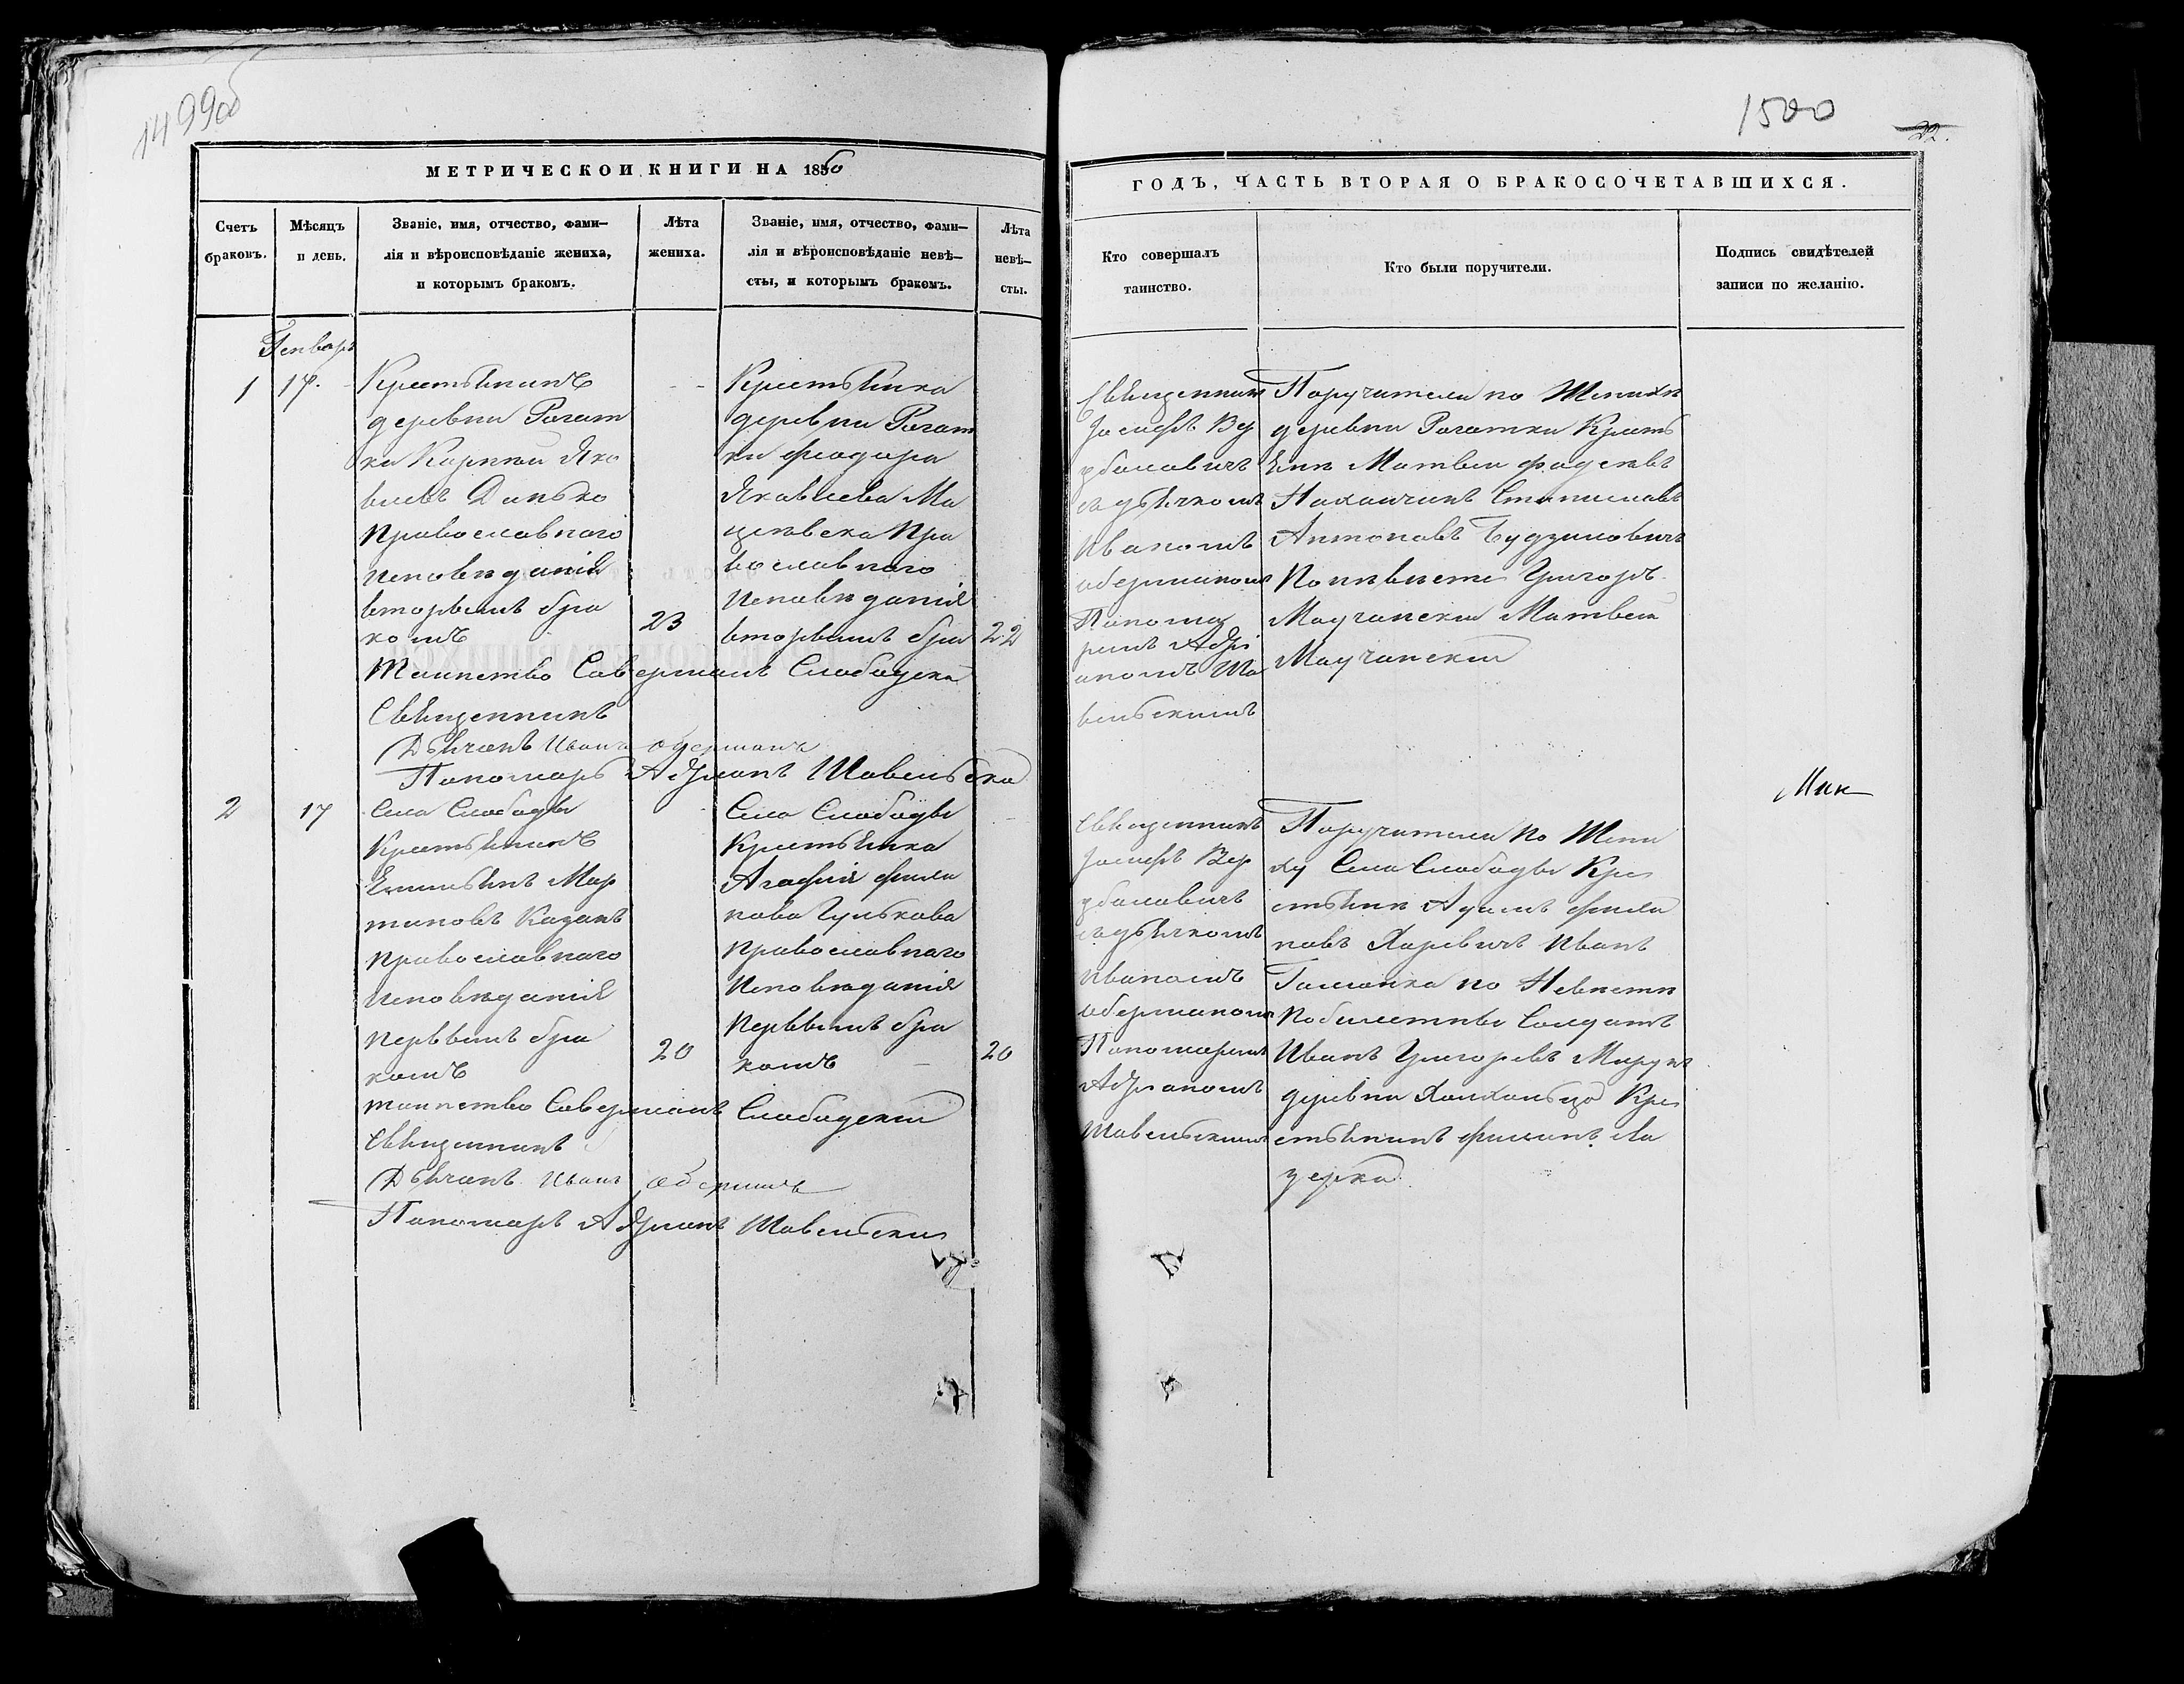 1499об
МЕТРИЧЕСКОЙ КНИГИ НА 1860
Счетъ браковъ.
Мѣсяцъ и день.
Званіе, имя, отчество, фами-
лія и вѣроисповѣданіе жениха,
и которымъ бракомъ.
Лѣта жениха.
Званіе, имя, отчество, фами-
лія и вѣроисповѣданіе невѣ-
сты, и которымъ бракомъ.
Лѣта невѣ-
сты.
Генварь
1
17.
Крестьянинъ
деревни Рогат
ки
Яко
влевъ Данько
Православнаго
Исповѣданія
вторымъ бра
комъ
23
Крестьянка
деревни Рогат
ки Феодора
Яковлева Ма
Пра
вославнаго
Исповѣданія
вторымъ бра
22
Таинство Совершалъ Слободскій
Священникъ
Дьячекъ Иванъ Оберманъ
Пономарь Адріанъ Шавельскій
2
17
Села Слободы
Крестьянинъ
Емильянъ Мар
тиновъ Казакъ
Православнаго
Исповѣданія
Первымъ бра
комъ
20
Села Слободы
Крестьянка
Агафія Фили
пова Гулькова
Православнаго
Исповѣданія
Первымъ бра
комъ
20
таинство Совершалъ Слободскій
Священникъ
Дьячекъ Иванъ Оберманъ
Пономарь Адріанъ Шавельскій
1500
22.
ГОДЪ, ЧАСТЬ ВТОРАЯ О БРАКОСОЧЕТАВШИХСЯ.
Кто совершалъ
таинство.
Кто были поручители.
Подпись свидѣтелей
записи по желанію.
Священникъ
Іосифъ Вер
баловичъ
съ дьячкомъ
Иваномъ
Оберманомъ
Понома
ремъ Адрі
аномъ Ша
вельскимъ
Поручители по Женихѣ
деревни Рогатки Кресть
яне Матвей Фадеевъ
Станиславъ
Антоновъ Будзиловичъ
По невѣсте Григоръ
Матвей
Священникъ
Іосифъ Вер
баловичъ
съ дьячкомъ
Иваномъ
Оберманомъ
Пономаремъ
Адріаномъ
Шавельскимъ
Поручители по Жени
ху Села Слободы Кре
стьяне Адамъ Фили
повъ Харевичъ Иванъ
по Невѣсте
Солдатъ
Иванъ Григоревъ
деревни Кре
стьянинъ Филипъ Ла
зерка
Мик